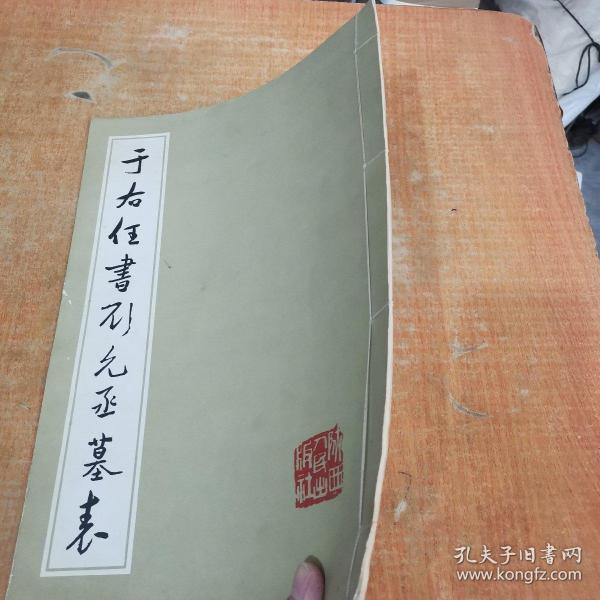 于右任书彭允丞墓表
陕西
人民出
版社
孔夫子旧书网
www.kongfz.com